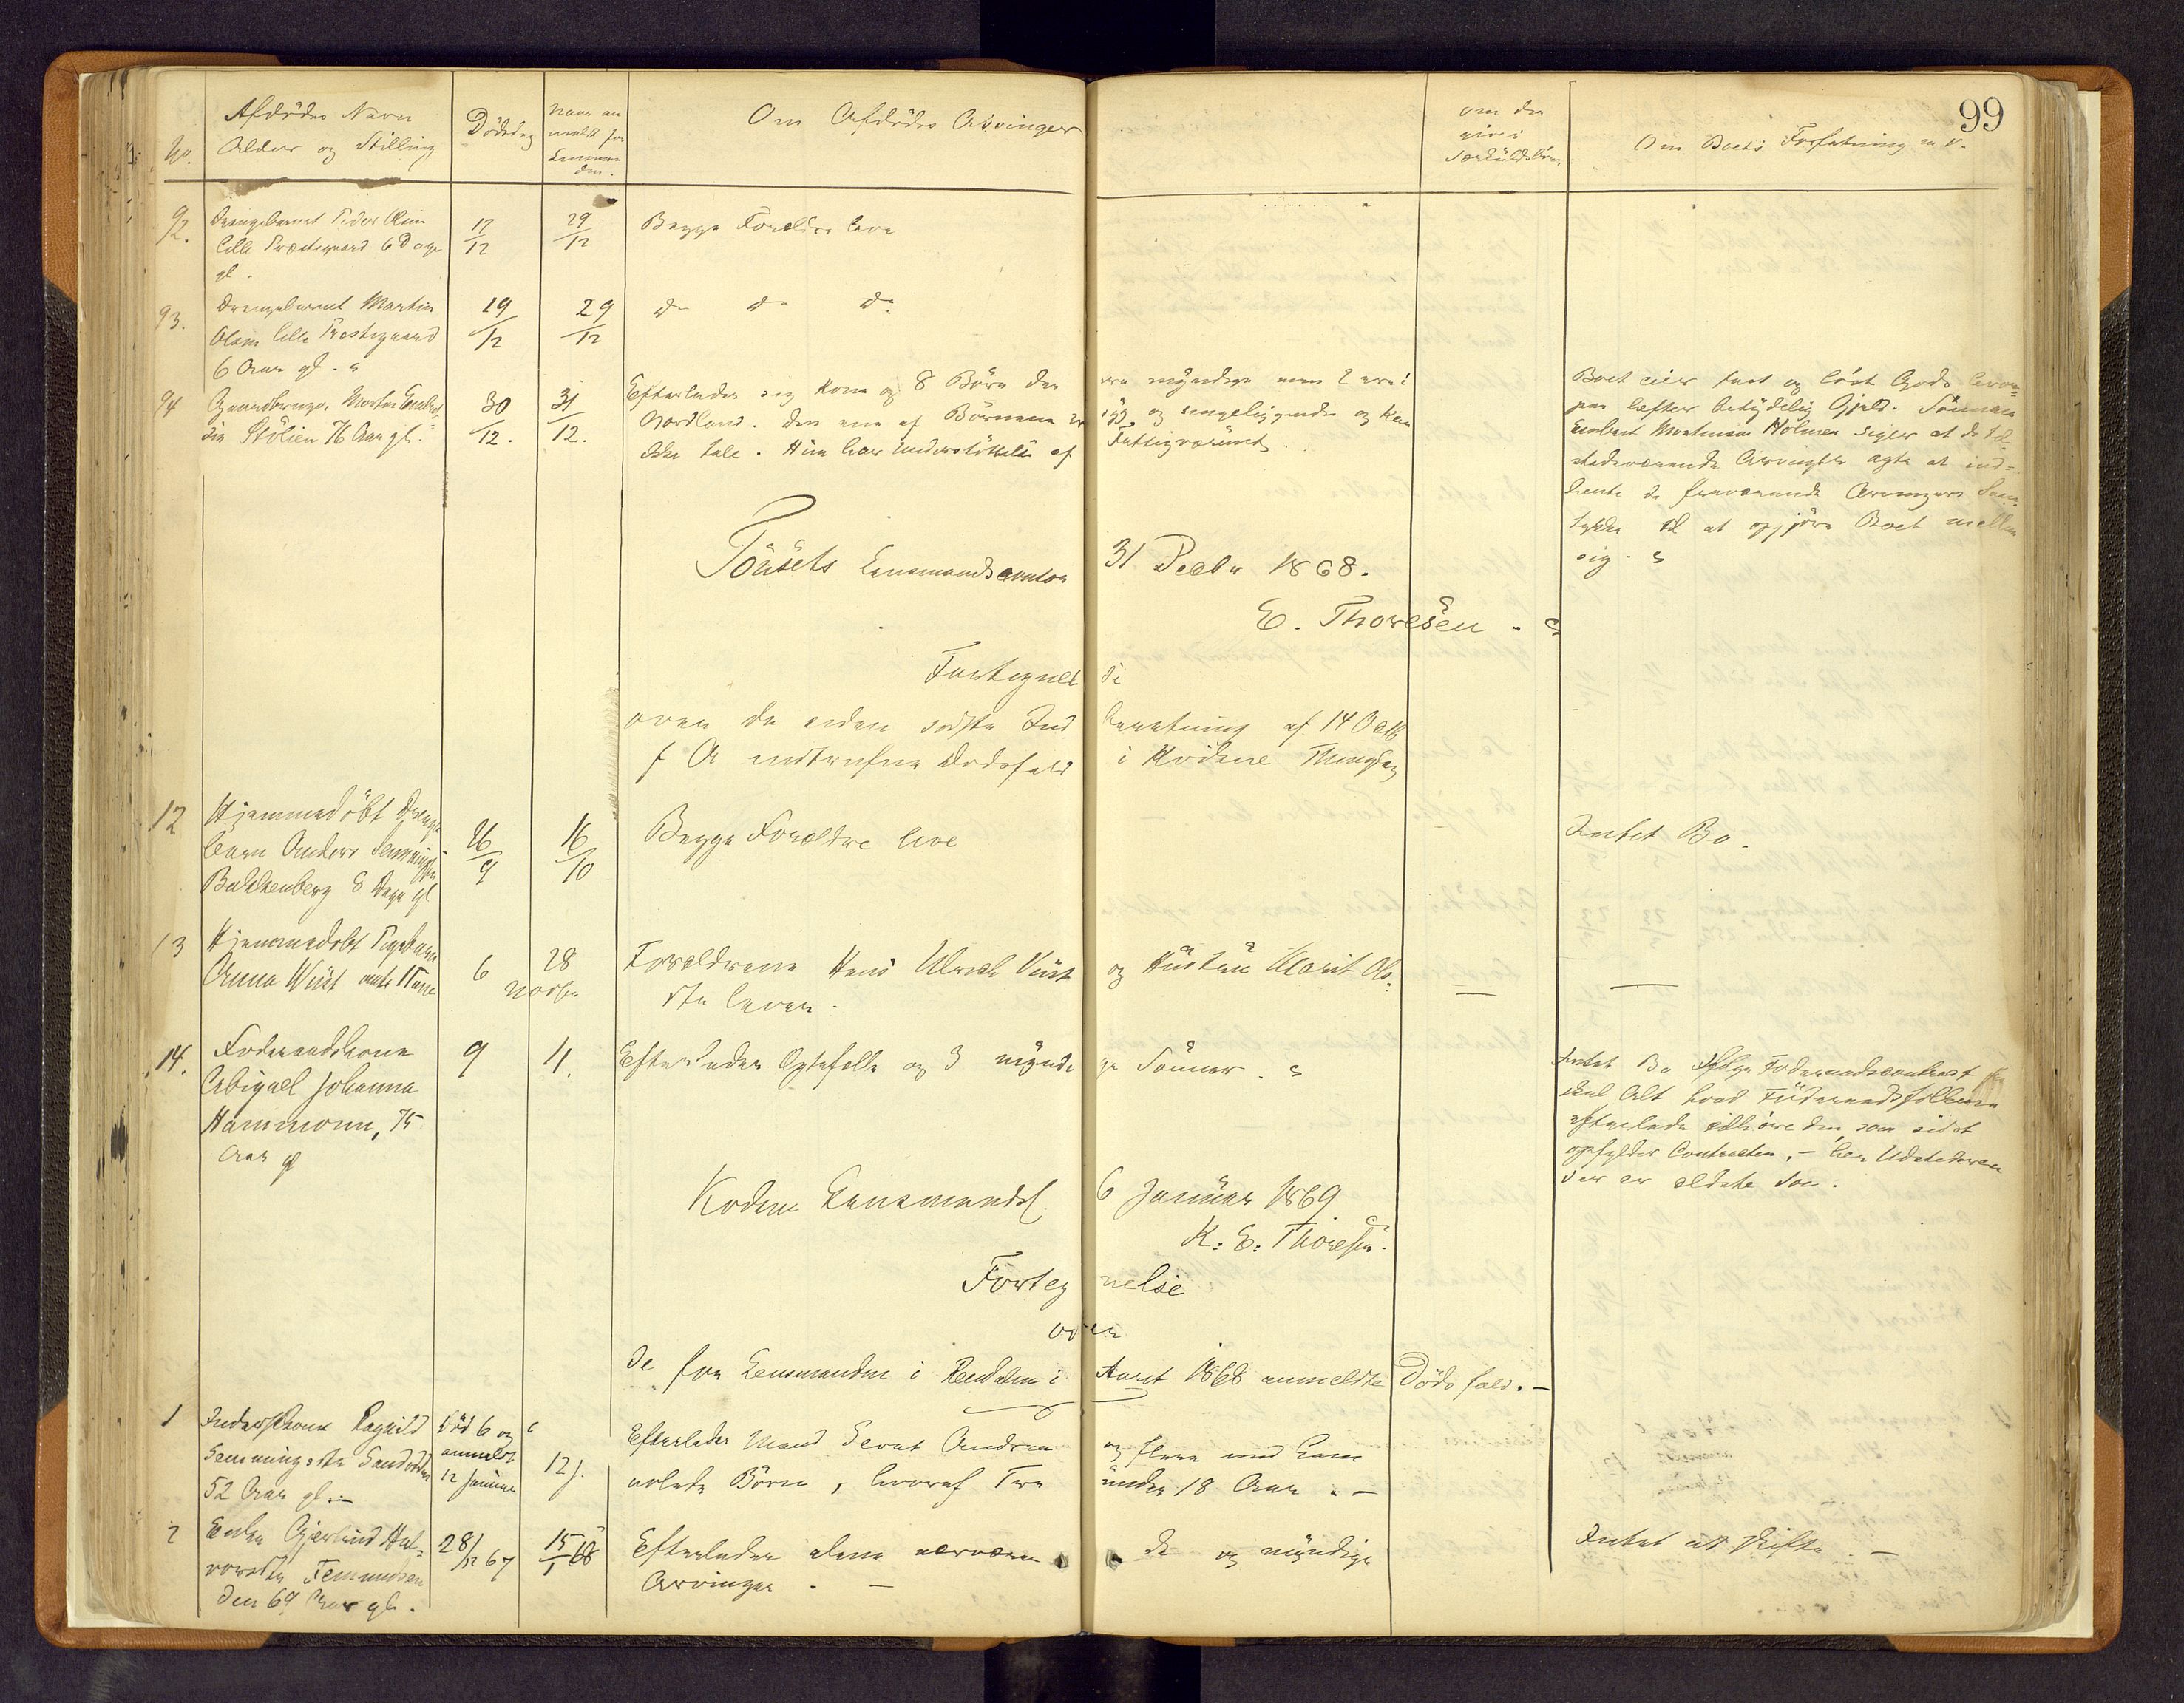 99
No.
Afdödes Navn
Alder og Stilling
Dödsdag
Naar an
meldt for
Lensman
den.
Om Afdödes Arvinger
om der
gives
Om Boets Forfatning m. V.
92. Drengebarnet Peder Olsen
Lille Præstegaard 6 Dage
gl.
17/12 29/12 Begge Forældre leve
93. Drengebarnet Martin
Olsen Lille Prestegaard
6 Aar gl.
19/12 29/12 do do do
94 Gaardbruger Morten Embret
sen Stölien 76 Aar gl.
30/12. 31/12.
Efterlader sig Kone og 8 Börn der ere myndige men 2 ere i
Nordland. Den ene af Börnene er og sengeliggende og kan
ikke tale. Hun har Understöttelse af Fattigvæsenet.
Boet eier fast og löst Gods hvor
paa hefter betydelig Gjæld. Sönnen
Embret Mortensen Holmen siger at de til
stedeværende Arvinger agte at ind-
hente de fraværende Arvingers Sam
tykke til at opgjöre Boet mellem
sig.
Tönsets Lensmandscontor 31 Decbr 1868.
E. Thoresen
Fortegnelse
over de siden sidste Indberetning af 14 Octb
f A indtrufne Dödsfald i Kvikne Thinglag
12 Hjemmedöbt Drenge
barn Anders Semmingsen
Bakkenberg 8 Dage gl
26/9 16/10 Begge Forældre leve
Intet Bo.
13 Hjemmedöbt Pigebarn
Anna Wüst
6 28
Novbr
Forældrene Hans Ulrich Wüst og Hustru Marit Ols-
dtr lever.
—
—
14. Föderaadskone
Abigael Johanna
Hammonn, 75
Aar gl
9 11. Efterlader Ægtefelle og 3 myndige Sönner.
Intet Bo Ifölge Föderaadscontract
skal Alt hvad Föderaadsfolkene
efterlade tilhöre den, som sidst
opfylder Contracten, – her Udstederen
der er eldste Sön.
Kvikne Lensmandsc. 6 Januar 1869
K. E. Thoresen.
Fortegnelse
over
de for Lensmanden i Rendalen i Aaret 1868 anmeldte Dödsfald. –
1 Inderstkone Ragnild
Semmingsdtr Sandodden
52 Aar gl. –
Död 6 og
anmeldt
12 Januar
12/1.
Efterlader Mand Sevat Andersen og flere med ham
avlede Börn, hvoraf Tre under 18 Aar. –
2 Enke Gjertrud Hal-
vorsdtr Femundsen
den 69 Aar gl.
28/12 67 15/1 68
Efterlader alene nærværende og myndige
Arvinger. –
Intet at skifte. –